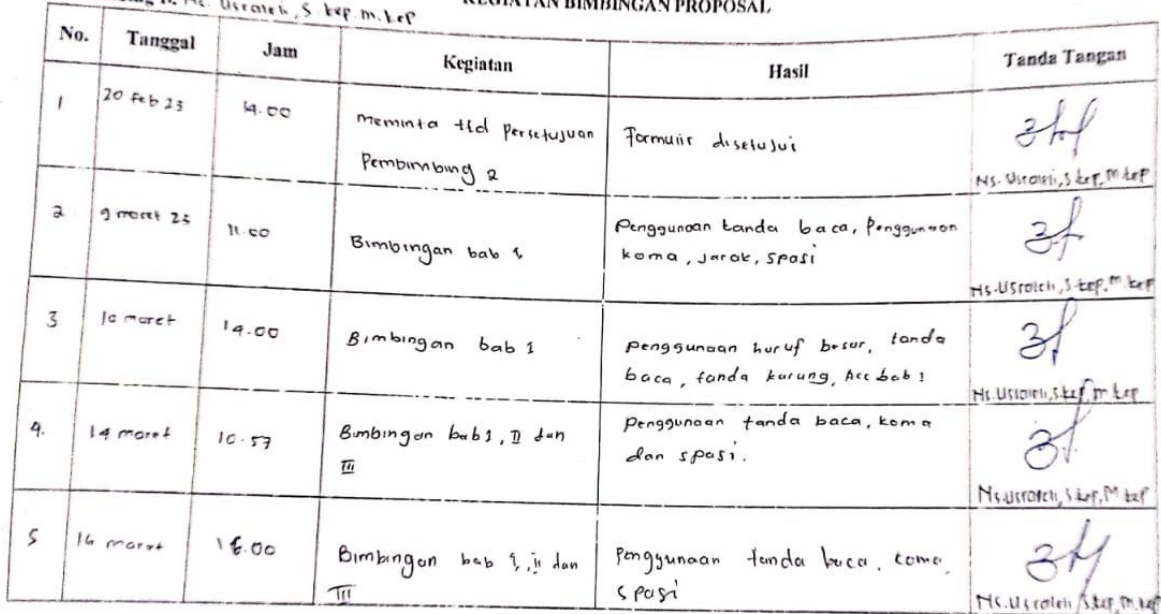 Ns. Usroleh, S.kep.M.kep
KEGIATAN BIMBINGAN PROPOSAL
No. Tanggal Jam Kegiatan Hasil Tanda Tangan
1 20 Feb 23 14.00 Meminta ttd Persetujuan Formulir disetujui
Pembimbing 2
Ns. Usroleh, S.kep, M.kep
2. 9 maret 23 11.00 Bimbingan bab 1 Penggunaan tanda baca, Penggunaan
koma, Jarak, Spasi
Ns. Usroleh, S.kep, M.kep
3. 10 maret 14.00 Bimbingan bab 1 penggunaan huruf besar, tanda
baca, tanda kurung, Acc bab 1
Ns. Usroleh, S.kep, M.kep
4. 14 maret 10.57 Bimbingan bab 1, II dan Penggunaan tanda baca, koma
III dan spasi.
Ns. Usroleh, S.kep, M.kep
5 maret 16.00 Bimbingan bab I, II dan Penggunaan tanda baca, koma,
III spasi
Ns. Usroleh, S.kep, M.kep